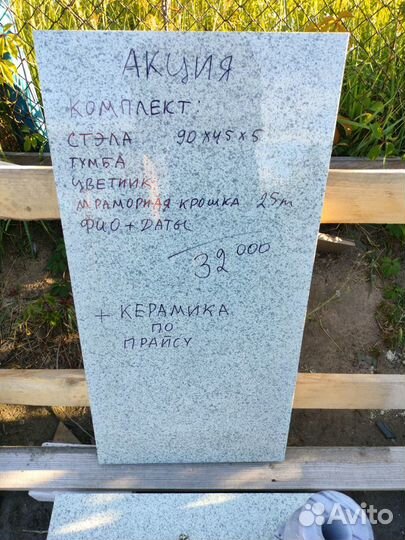 АКЦИЯ
КОМПЛЕКТ:
СТЭЛА 90х45х5
ТУМБА
ЦВЕТНИК
МРАМОРНАЯ КРОШКА 25т
ФИО + ДАТЫ
32 000
+ КЕРАМИКА
ПО
ПРАЙСУ
Avito